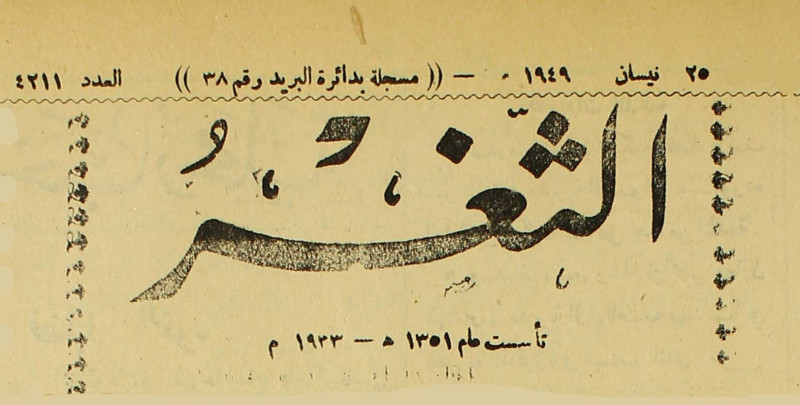 ٢٥ نيسان ١٩٤٩ - — (( مسجلة بدائرة البريد رقم ٣٨ )) العدد ٤٢١١
الثَّغْرُ
تأسست عام ١٣٥١ ه — ١٩٣٣ م